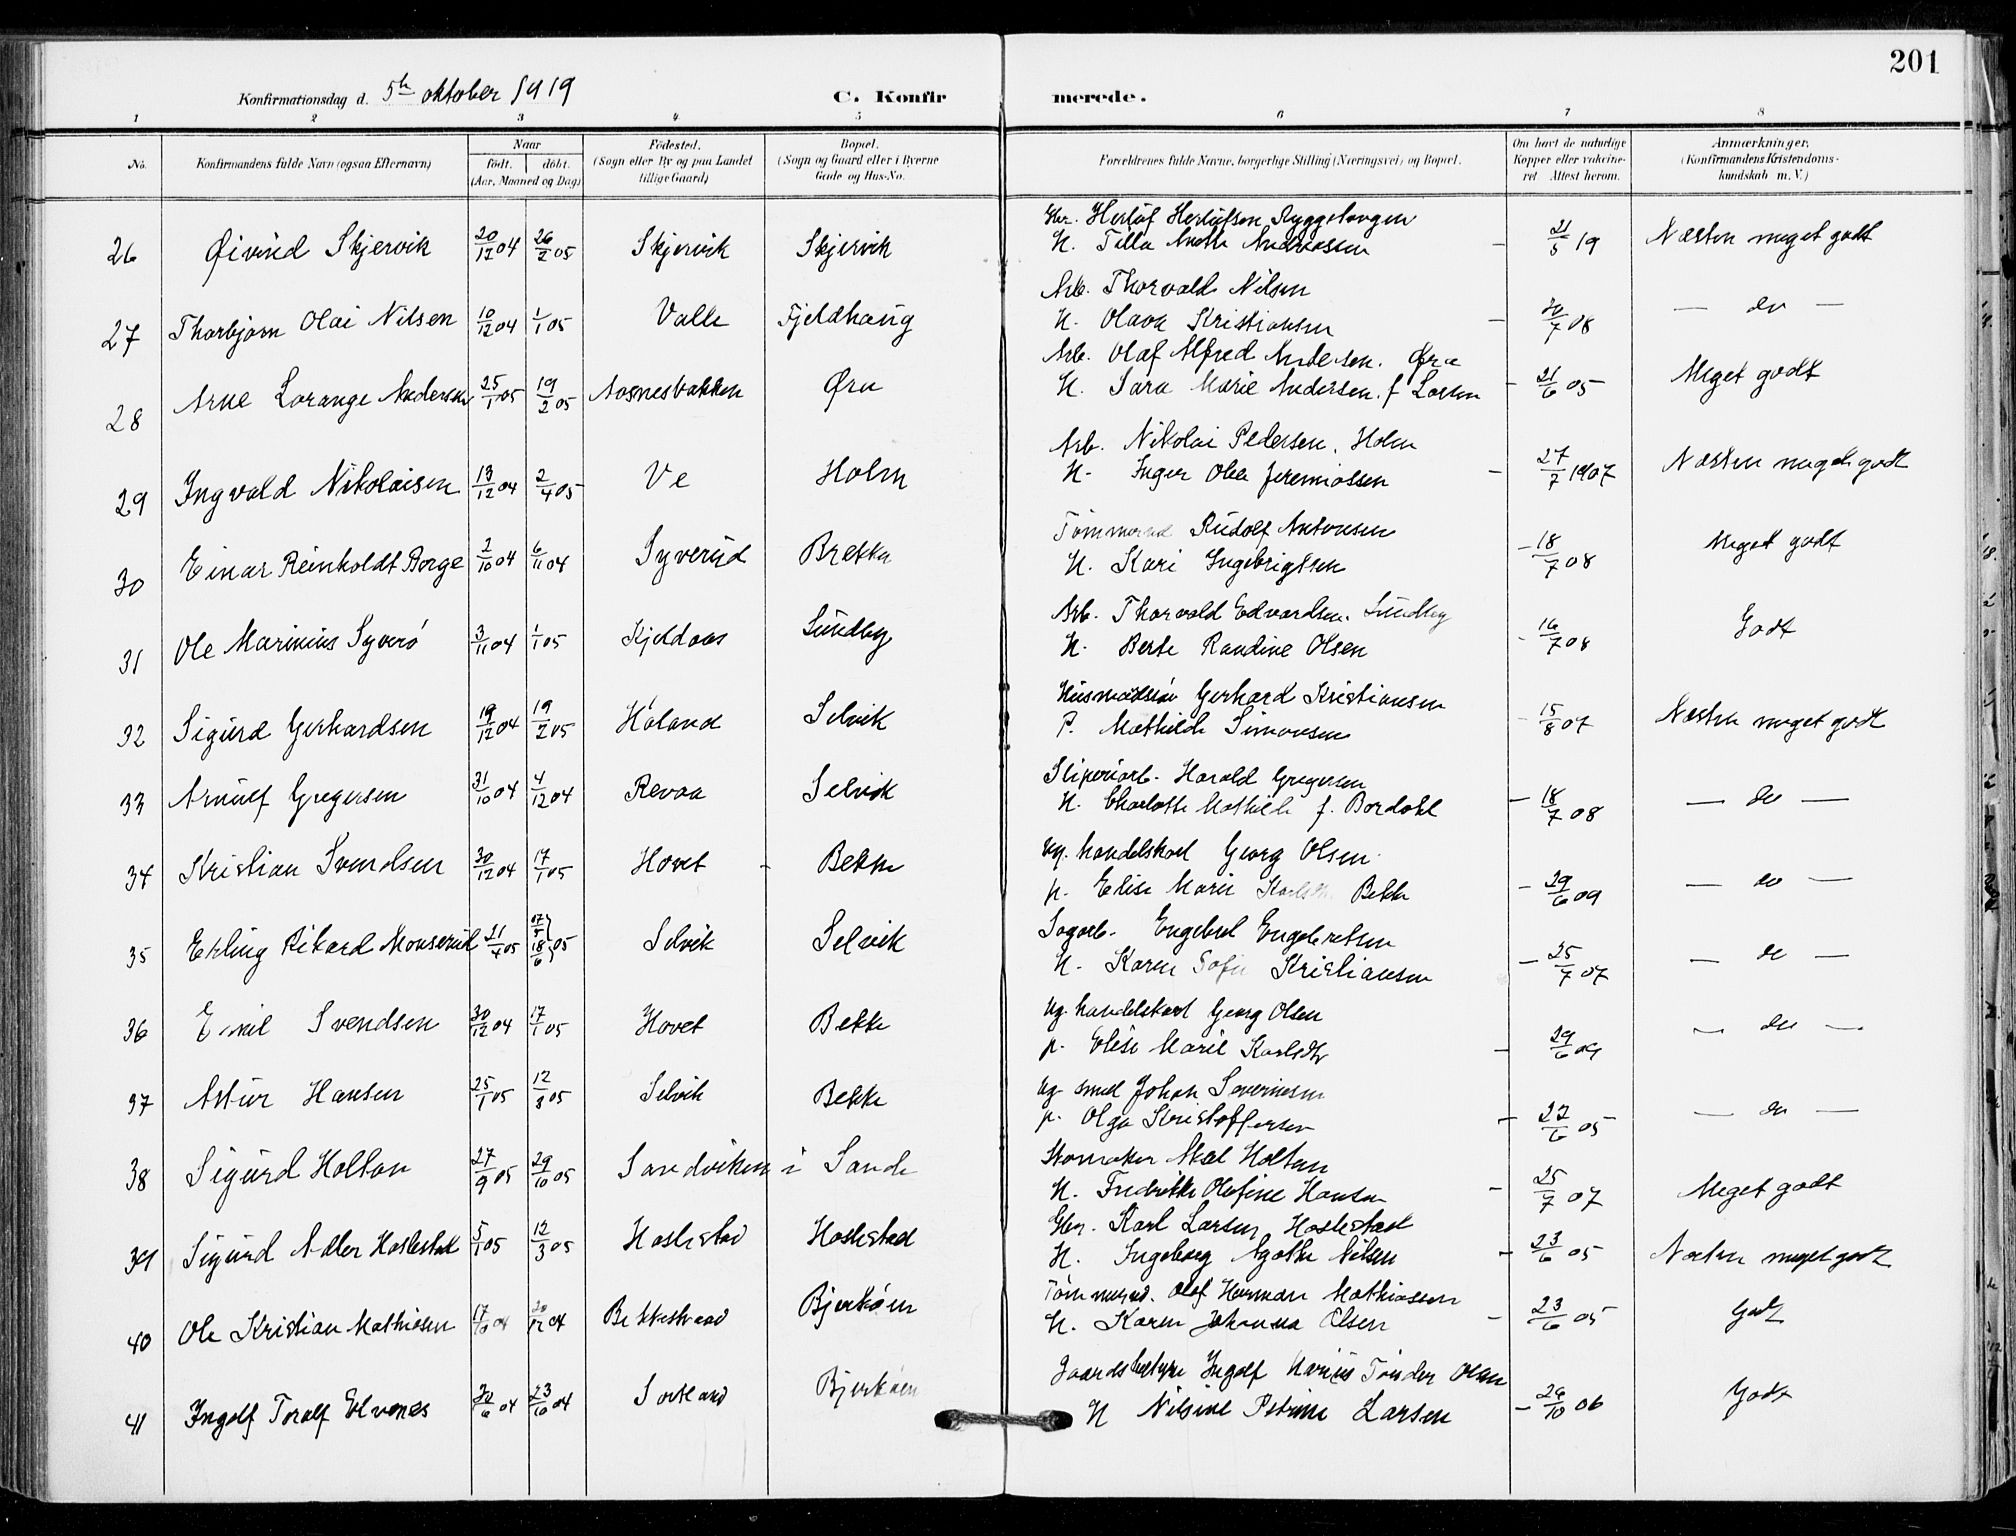 201
Konfirmationsdag d. 5te oktober 1919 C. Konfirmerede.
1 2 3 4 5 6 7 8
No. Konfirmandens fulde Navn (ogsaa Efternavn) Naar födt. döbt. (Aar, Maaned og Dag) Födested. (Sogn eller By og paa Landet tillige Gaard) Bopæl. (Sogn og Gaard eller i Byerne Gade og Hus-No. Forældrenes fulde Navne, borgerlige Stilling (Næringsvei) og Bopæl. Om havt de naturlige Kopper eller vakcineret Attest herom. Anmærkninger. (Konfirmandens Kristendomskundskab m. V.)
Gbr. Herlof Herlofsen Ryggetangen
26 Øivind Skjervik 20/12 04 26/2 05 Skjervik Skjervik H. Tilla Andrea Andreassen - 21/5 19 Næsten meget godt
Arb. Thorvald Nilsen
27 Thorbjørn Olai Nilsen 10/12 04 1/1 05 Valle Fjeldhaug H. Olava Kristiansen - 30/7 08 — do —
Arb. Olaf Alfred Andersen. Øra
28 Arne Lorange Andersen 25/1 05 19/2 05 Aasnesbakken Øra H. Sara Marie Andersen f Larsen - 21/6 05 Meget godt
Arb. Nikolai Pedersen, Holm
29 Ingvald Nikolaisen 13/12 04 2/4 05 Ve Holm H. Inger Olea Jeremiassen - 27/7 1907 Næsten meget godt
Tømmermd Rudolf Antonsen
30 Einar Reinholdt Borge 2/10 04 6/11 04 Syverud Brekke H. Kari Ingebrigtsen - 18/7 08 Meget godt
Arb. Thorvald Edvardsen. Sundby
31 Ole Marinius Syverø 3/11 04 1/1 05 Kjeldaas Sundby H. Berte Randine Olsen - 16/7 08 Godt
Gerhard Kristiansen
32 Sigurd Gerhardsen 19/12 04 19/2 05 Haland Selvik P. Mathilde Simonsen - 15/8 07 Næsten meget godt
Sliperiarb. Harald Gregersen
33 Arnulf Gregersen 31/10 04 4/12 04 Revaa Selvik H. Charlotte Mathilde f. Bordahl - 18/7 08 — do —
Ug. handelskarl Georg Olsen
34 Kristian Svendsen 30/12 04 17/1 05 Hovet - Bekke p. Elise Marie Karlsdtr Bekke - 29/6 09 — do —
Sagarb. Engebret Engebretsen
35 Erling Rikard Monservik 21/4 05 07/5 18/6 05 Selvik Selvik H. Karen Sofie Kristiansen - 25/7 07 — do —
Ug. handelskarl Georg Olsen
36 Emil Svendsen 30/12 04 17/1 05 Hovet Bekke p. Elise Marie Karlsdtr - 29/6 09 — do —
Ug. smed Johan Severinsen
37 Artur Hansen 25/1 05 12/3 05 Selvik Bekke p. Olga Kristoffersen - 22/6 05 — do —
Skomaker Aksel Holtan
38 Sigurd Holtan 27/9 05 29/10 05 Sandviken i Sande H. Fredrikke Olefine Hansen - 25/7 07 Meget godt
Gbr. Karl Larsen, Haslestad
39 Sigurd Adler Haslestad 5/1 05 12/3 05 Haslestad Haslestad H. Ingeborg Agathe Nilsen - 23/6 05 Næsten meget godt
Tømmermd. Olaf Herman Mathiassen
40 Ole Kristian Mathiasen 17/10 04 20/12 04 Bekkestrand Bjerkøen H. Karen Johanna Olsen - 23/6 05 Godt
Gaardsbestyrer Ingolf Marius Tønder Olsen
41 Ingolf Toralf Elvenes 30/6 04 23/10 04 Sortland Bjerkøen H Nilsine Petrine Larsen - 26/10 06 Godt